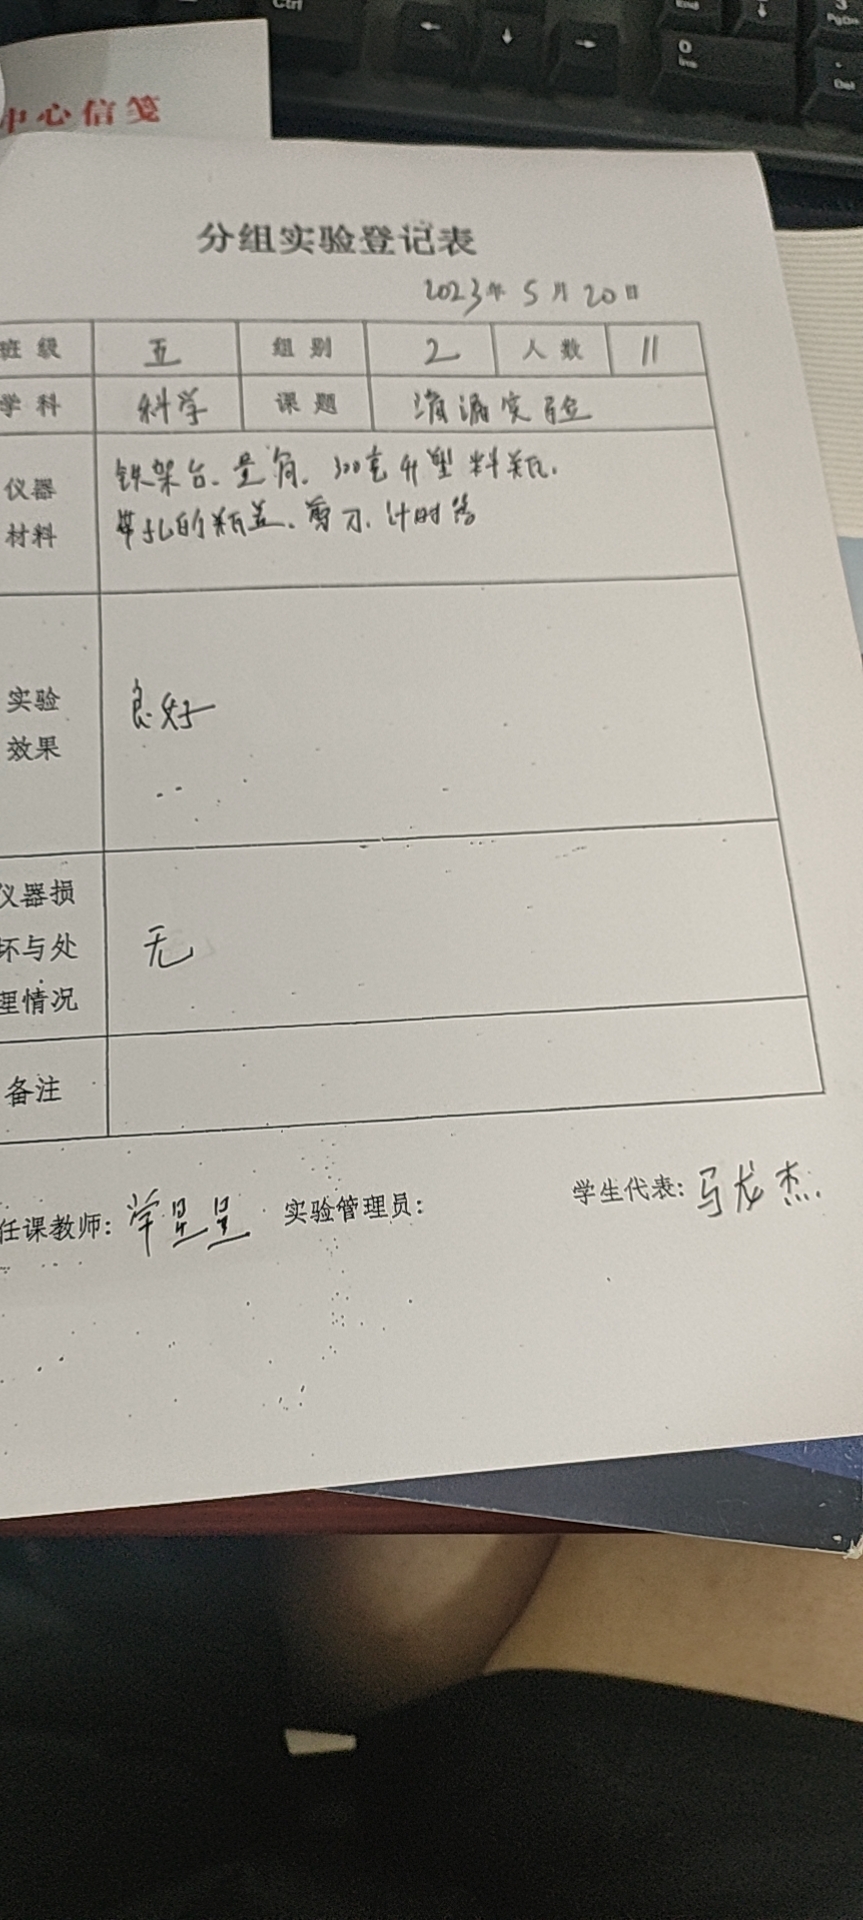 Ctrl
End
PgDn
0
Ins
Del
中心信笺
分组实验登记表
2023年5月20日
班级 五 组别 2 人数 11
学科 科学 课题 滴漏实验
仪器
材料
铁架台、量筒、300毫升塑料瓶、
带孔的瓶盖、剪刀、计时器
实验
效果
良好
仪器损
坏与处
理情况
无
备注
任课教师: 实验管理员: 学生代表: 马龙杰